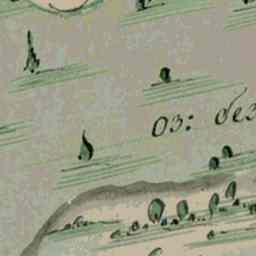 оз: без